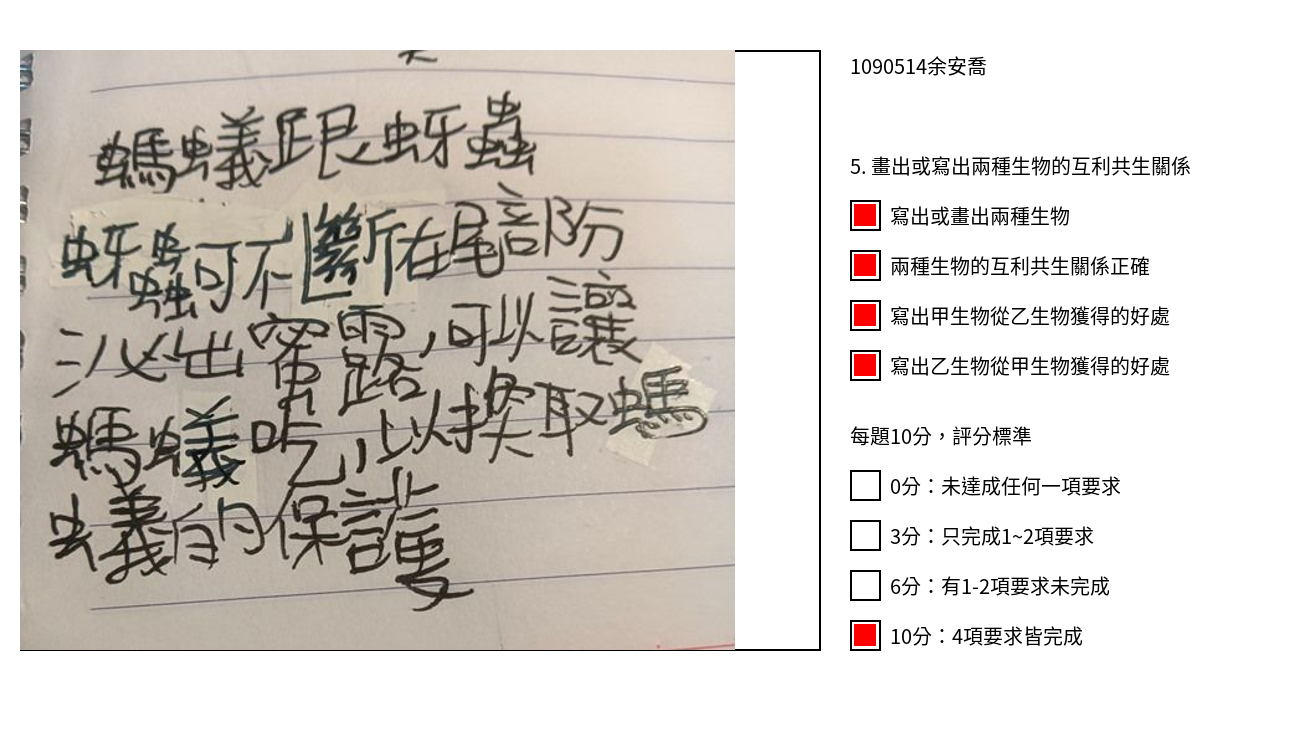 螞蟻跟蚜蟲
蚜蟲可不斷在尾部份
泌出蜜露,可以讓
螞蟻吃,以換取螞
蟻的保護
1090514余安喬
5. 畫出或寫出兩種生物的互利共生關係
寫出或畫出兩種生物
兩種生物的互利共生關係正確
寫出甲生物從乙生物獲得的好處
寫出乙生物從甲生物獲得的好處
每題10分,評分標準
0分:未達成任何一項要求
3分:只完成1~2項要求
6分:有1-2項要求未完成
10分:4項要求皆完成